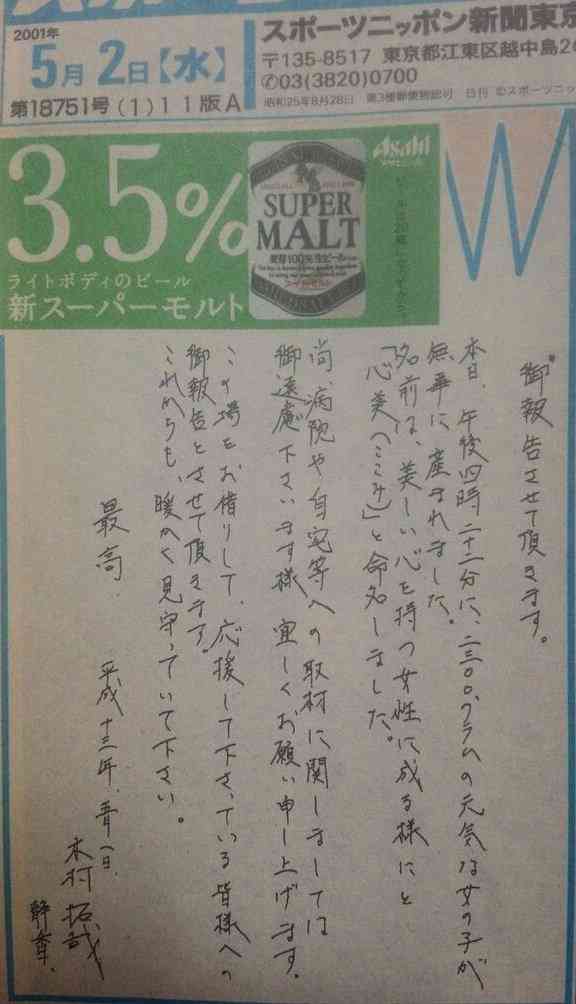 2001年
5月2日【水】
第18751号 (1) 11版A
スポーツニッポン新聞東京
〒135-8517 東京都江東区越中島2
✆03(3820)0700
昭和25年8月28日 第3種郵便物認可 日刊 ©スポーツニッ
3.5%
ライトボディのビール
新スーパーモルト
SUPER
MALT
麦芽100%生ビール
スーパーモルト
Asahi
アサヒビール
W
御報告させて頂きます。
本日、午後四時二十二分に、二三〇〇グラムの元気な女の子が
無事に産まれました。
名前は、美しい心を持つ女性に成る様にと
「心美(ここみ)」と命名しました。
尚、病院や自宅等への取材に関しましては
御遠慮下さいます様、宜しくお願い申し上げます。
この場をお借りして、応援して下さっている皆様への
御報告とさせて頂きます。
これからも、暖かく見守っていて下さい。
最高。
平成十三年、五月一日、
木村拓哉
静香、